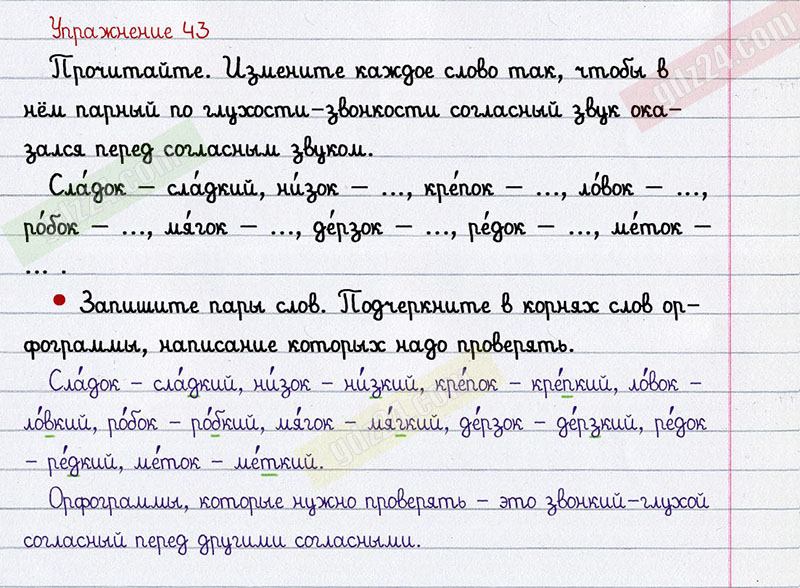 Упражнение 43
gdz24.com
Прочитайте. Измените каждое слово так, чтобы в
нём парный по глухости-звонкости согласный звук ока-
зался перед согласным звуком.
Сла́док – сла́дкий, ни́зок – ..., кре́пок – ..., ло́вок – ...,
ро́бок – ..., мя́гок – ..., де́рзок – ..., ре́док – ..., ме́ток –
... .
gdz24.com
• Запишите пары слов. Подчеркните в корнях слов ор-
фограммы, написание которых надо проверять.
Сла́док – сла́дкий, ни́зок – ни́зкий, кре́пок – кре́пкий, ло́вок –
ло́вкий, ро́бок – ро́бкий, мя́гок – мя́гкий, де́рзок – де́рзкий, ре́док
– ре́дкий, ме́ток – ме́ткий.
gdz24.com
Орфограммы, которые нужно проверять – это звонкий-глухой
согласный перед другими согласными.